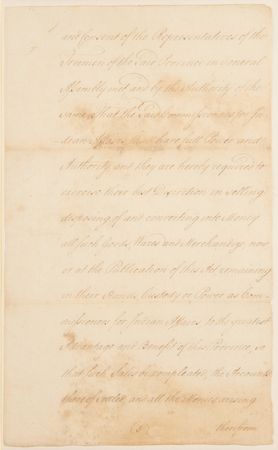 and Consent of the Representatives of the
Freemen of the said Province in General
Assembly met and by the Authority of the
same, That the said Commissioners for In-
dian Affairs shall have full Power and
Authority and they are hereby required to
exercise their best Discretion in selling
disposing of and converting into Money
all such Goods, Wares and Merchandize, now
or at the Publication of this Act remaining
in their Hands Custody or Power as Com-
missioners for Indian Affairs to the greatest
Advantage and Benefit of this Province, so
that such Sales be compleated, the Accounts
thereof settled, and all the Monies arising
(5) therefrom